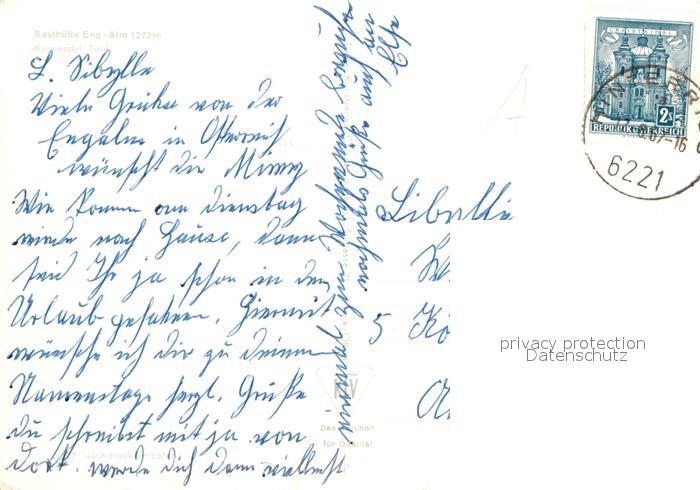 Rasthütte Eng - Alm 1272 m
Karwendel, Tirol
L. Sibylle
Viele Grüße von der
Engalm in Österreich
wünscht die
Wir kommen am Dienstag
wieder nach Hause, dann
seid Ihr ja schon in den
Urlaub gefahren. Hiermit
wünsche ich dir zu deinem
Namenstage herzl. Grüße
du schreibst mit ja von
dort. werde dich dann vielleicht
einmal zum
nochmals Grüße auch an
Elfe
CHRISTKINDL
2 S
REPUBLIK ÖSTERREICH
67-16
6221
Sibylle
5 Kö
Das Zeichen
für Qualität
Nachdruck verboten
privacy protection
Datenschutz